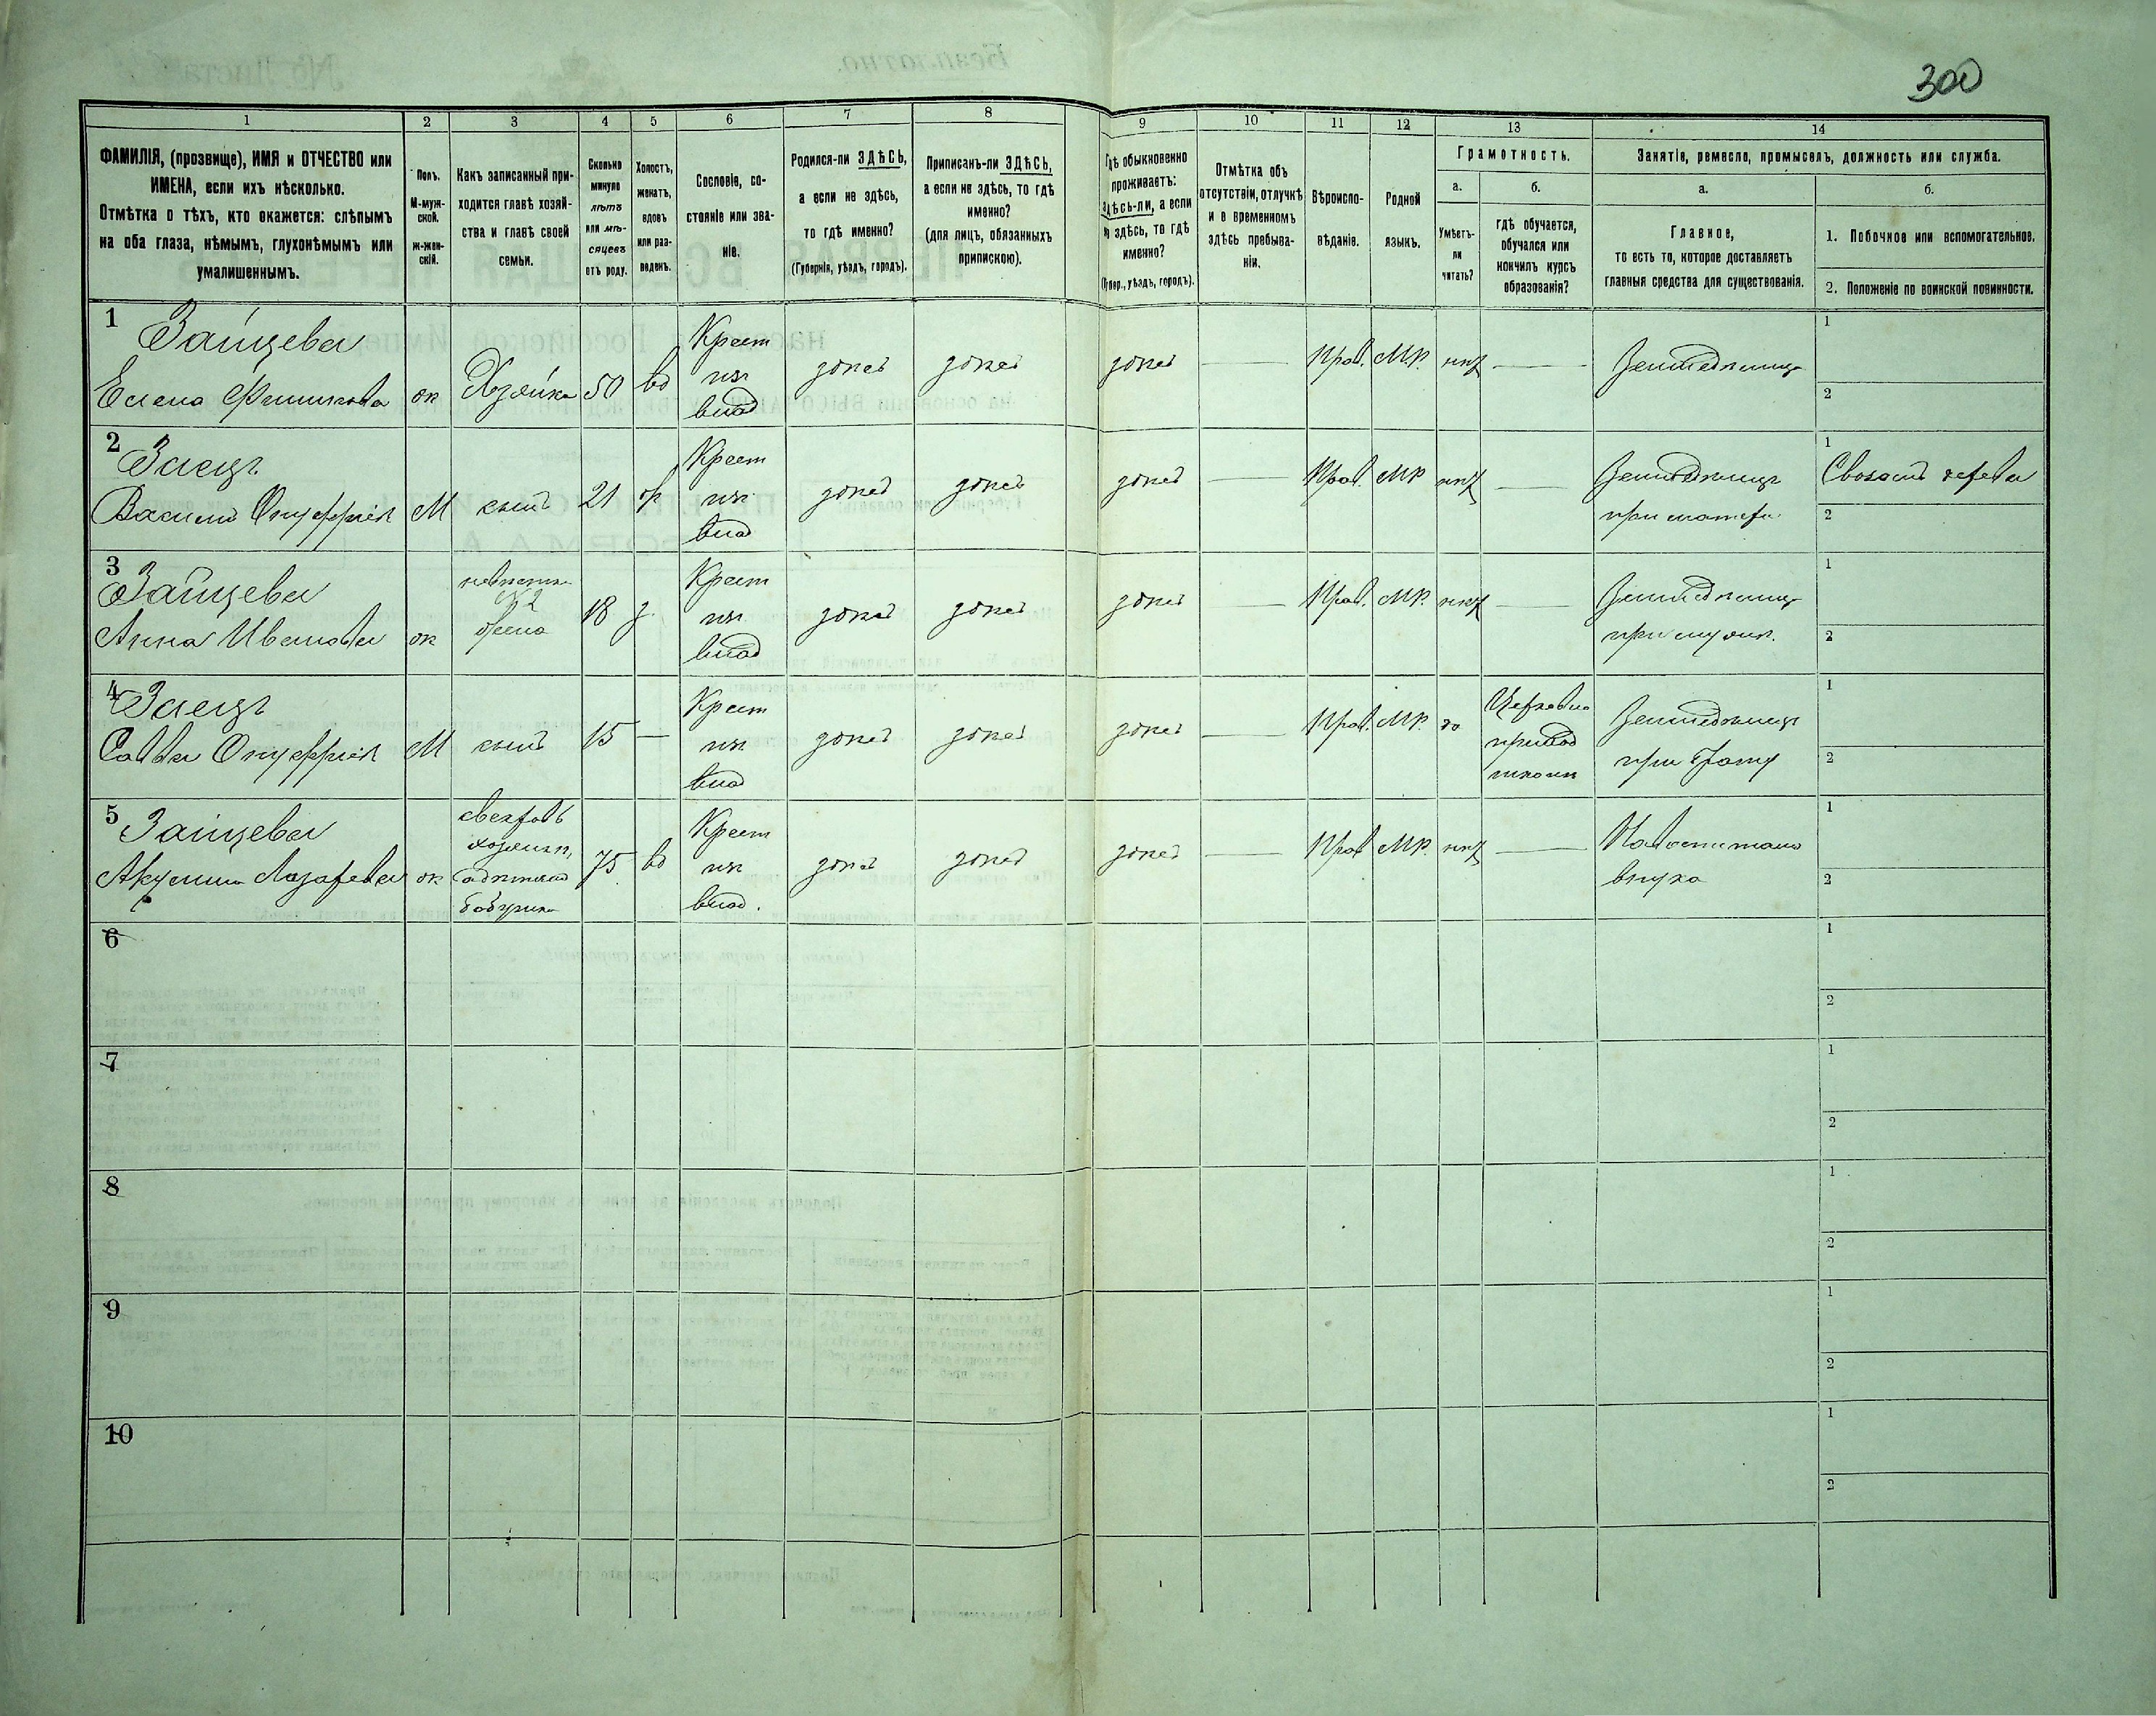 300
1 2 3 4 5 6 7 8 9 10 11 12 13 14
ФАМИЛІЯ, (прозвище), ИМЯ и ОТЧЕСТВО или
ИМЕНА, если ихъ нѣсколько.
Отмѣтка о тѣхъ, кто окажется: слѣпымъ
на оба глаза, нѣмымъ, глухонѣмымъ или
умалишеннымъ.
Полъ.
М-муж-
ской.
ж-жен-
скій.
Какъ записанный при-
ходится главѣ хозяй-
ства и главѣ своей
семьи.
Сколько
минуло
лѣтъ
или мѣ-
сяцевъ
отъ роду.
Холостъ,
женатъ,
вдовъ
или раз-
веденъ.
Сословіе, со-
стояніе или зва-
ніе.
Родился-ли ЗДѢСЬ,
а если не здѣсь,
то гдѣ именно?
(Губернія, уѣздъ, городъ).
Приписанъ-ли ЗДѢСЬ,
а если не здѣсь, то гдѣ
именно?
(для лицъ, обязанныхъ
припискою).
Гдѣ обыкновенно
проживаетъ:
здѣсь-ли, а если
не здѣсь, то гдѣ
именно?
(Губер., уѣздъ, городъ).
Отмѣтка объ
отсутствіи, отлучкѣ
и о временномъ
здѣсь пребыва-
ніи.
Вѣроиспо-
вѣданіе.
Родной
языкъ.
Грамотность.
а.
Умѣетъ-
ли
читать?
б.
гдѣ обучается,
обучался или
кончилъ курсъ
образованія?
Занятіе, ремесло, промыселъ, должность или служба.
а.
Главное,
то есть то, которое доставляетъ
главныя средства для существованія.
б.
1. Побочное или вспомогательное.
2. Положеніе по воинской повинности.
1
Зайцева
Елена ж Хозяйка 50 вд
Крест
изъ
влад
здесь здесь здесь — Прав. МР. нѣт — Земледелица
1
2
2
Заецъ
Василий Онуфрієв М сынъ 21 ж
Крест
изъ
влад
здесь здесь здесь — Прав. МР нѣт —
Земледелецъ
при матери
1
2
3
Зайцева
Анна Иванова ж
невестка
№2
жена
18 з.
Крест
изъ
влад
здесь здесь здесь — Прав. МР. нѣт —
Земледелица
при муже.
1
2
4
Заецъ
Савва Онуфрієв М сынъ 15 —
Крест
изъ
влад
здесь здесь здесь — Прав. МР. да
Церковно
приход
школи
Земледелецъ
при брату
1
2
5
Зайцева
Акулина Лазарева ж
свекровь
хозяйки,
бабушка
75 вд
Крест
изъ
влад.
здесь здесь здесь — Прав МР. нѣт —
внука
1
2
6
1
2
7
1
2
8
1
2
9
1
2
10
1
2